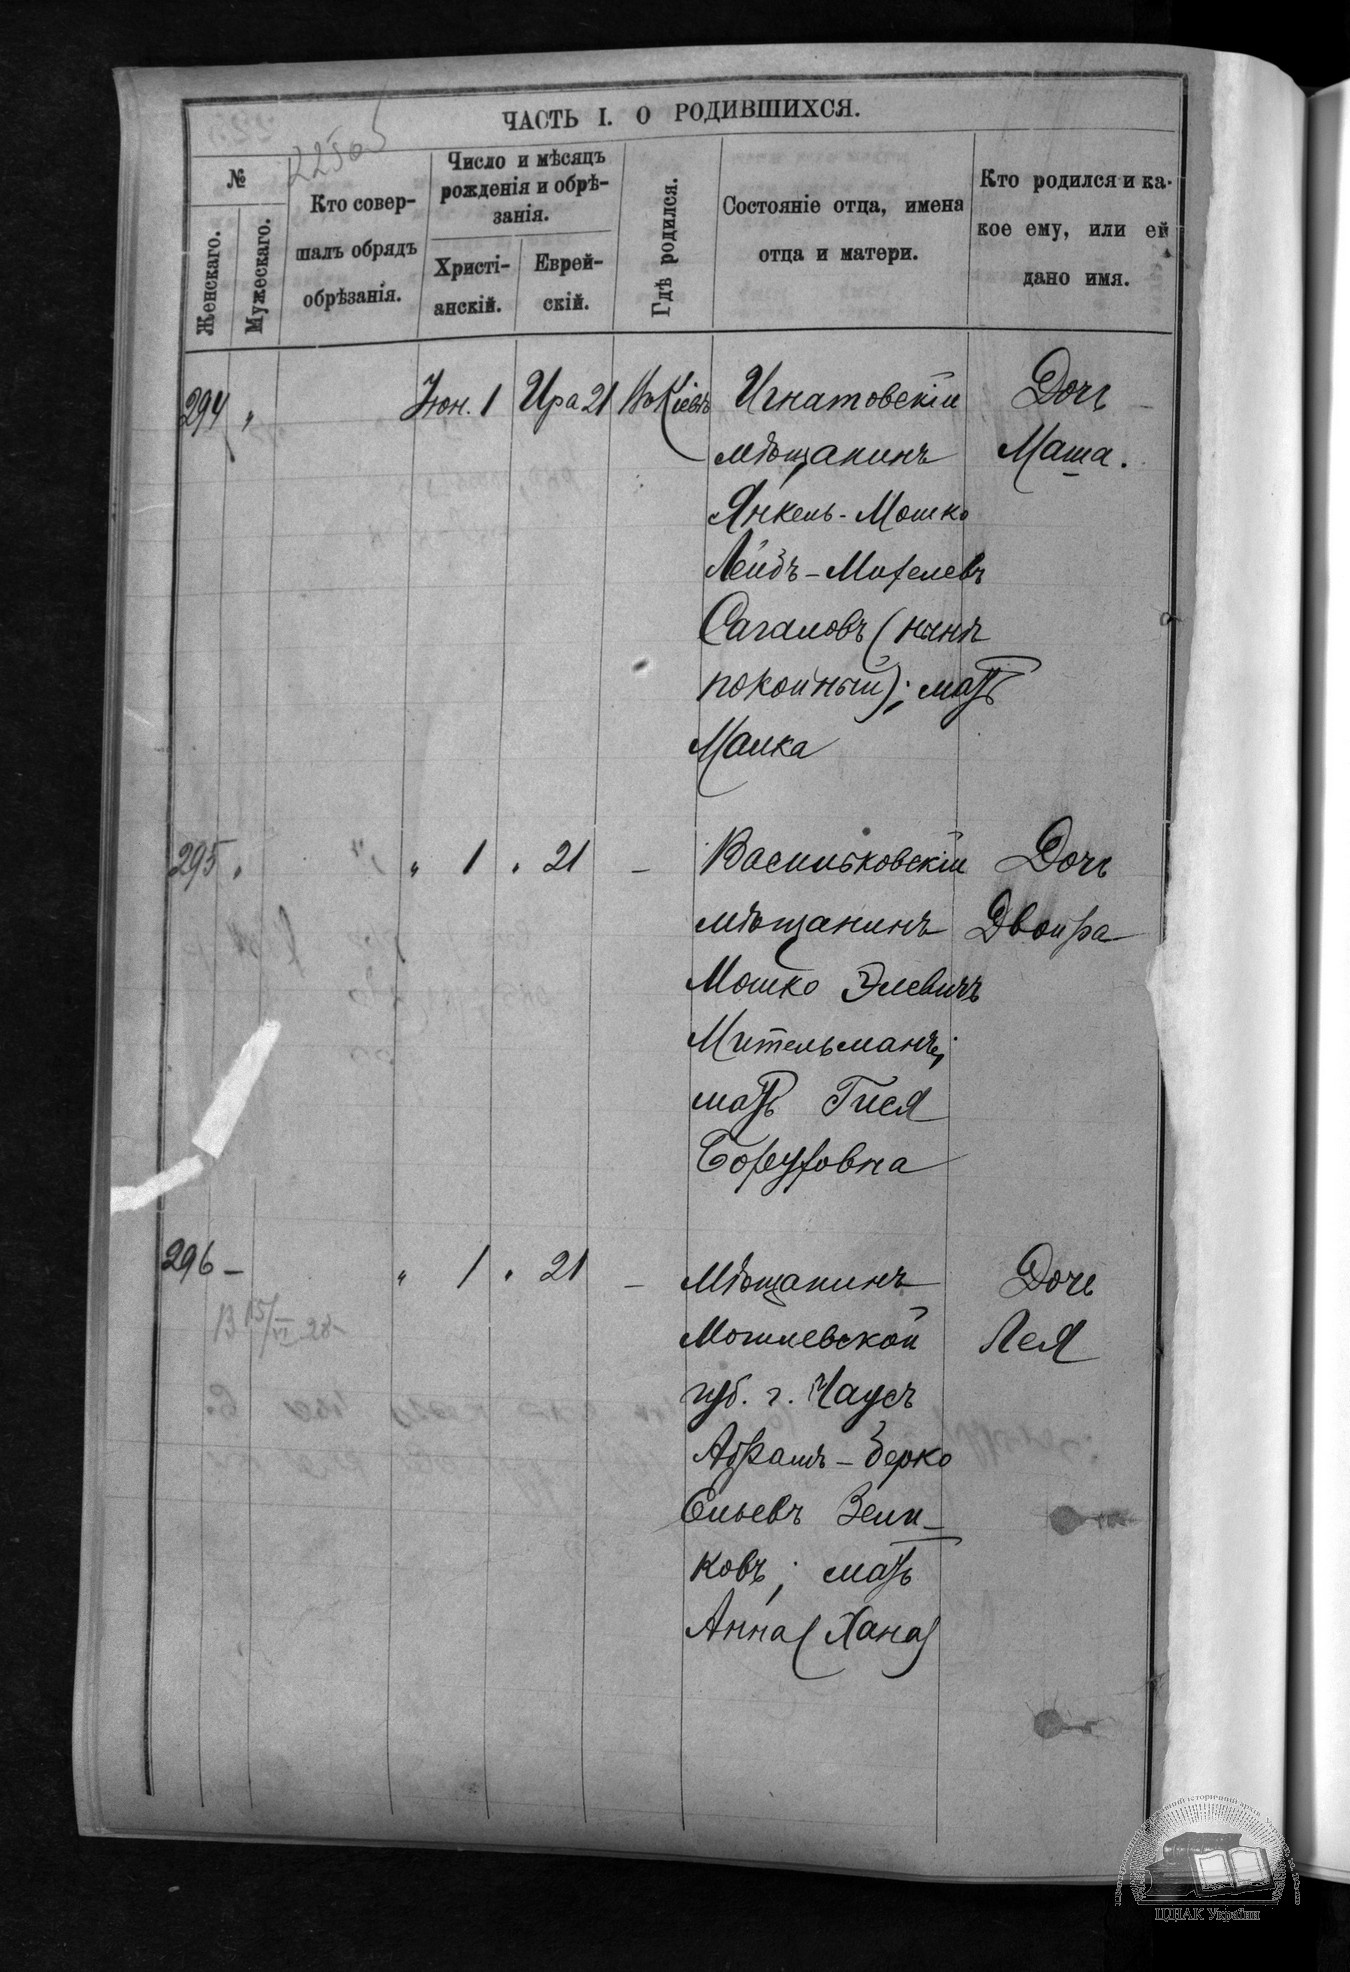 ЧАСТЬ I. О РОДИВШИХСЯ.
2250
№
Женскаго.
Мужескаго.
Кто совер-
шалъ обрядъ
обрѣзанія.
Число и мѣсяцъ
рожденія и обрѣ-
занія.
Христі-
анскій.
Еврей-
скій.
Гдѣ родился.
Состояніе отца, имена
отца и матери.
Кто родился и ка-
кое ему, или ей
дано имя.
294 „ Іюн. 1 Ира 21 Въ Кіевѣ Игнатовскій Дочь
мѣщанинъ Маша.
Янкель-Мошко
Лейбъ-Мотелевъ
Сагаловъ (нынѣ
покойный); мать
Малка
295 „ „ 1 „ 21 – Васильковскій Дочь
мѣщанинъ Двойра
Мошко Элевичъ
Мительманъ;
мать Гися
Боруховна
296 – „ 1 „ 21 – Мѣщанинъ Дочь
Могилевской Лея
губ. г. Чаусъ
Абрамъ-Берко
Ельевъ Зели-
ковъ; мать
Анна (Хана)
В 15/VI 28
ЦДІАК України